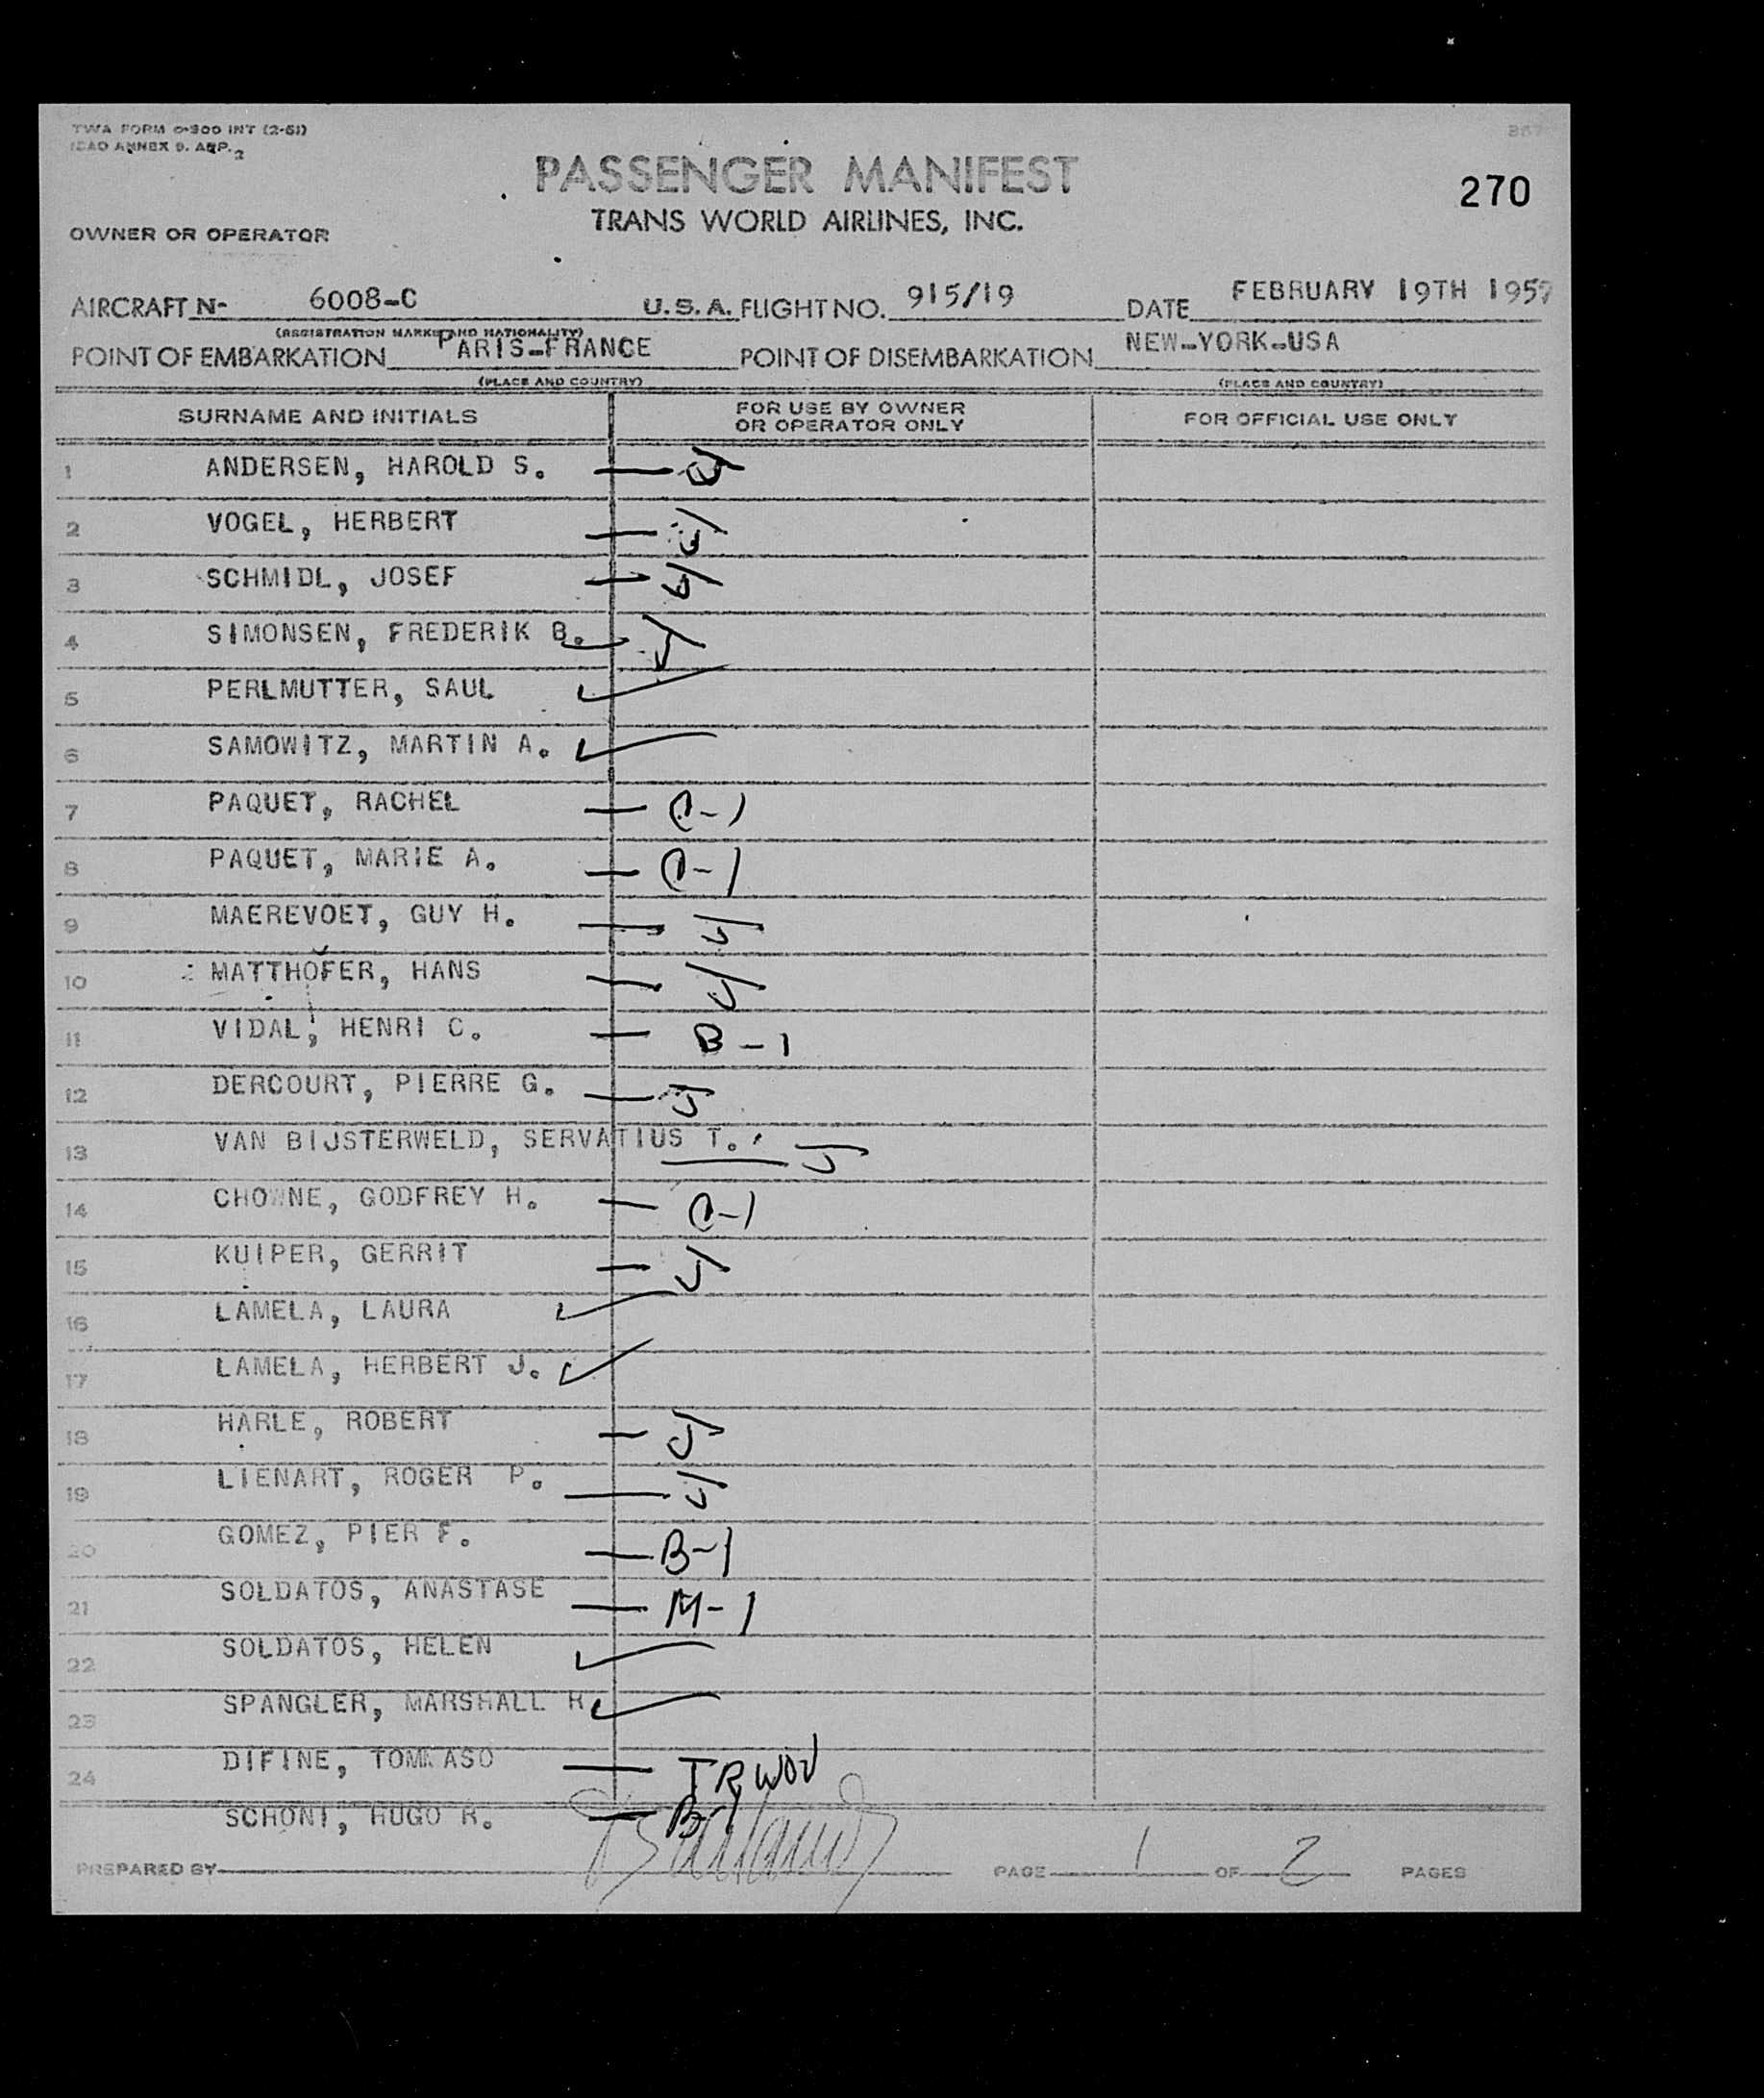 TWA FORM O-300 INT (2-51)
ICAO ANNEX 9. APP. 2
PASSENGER MANIFEST
270
TRANS WORLD AIRLINES, INC.
OWNER OR OPERATOR
AIRCRAFT N- 6008-C U.S.A. FLIGHT NO. 915/19 DATE FEBRUARY 19TH 1957
(REGISTRATION MARKS AND NATIONALITY)
POINT OF EMBARKATION PARIS-FRANCE POINT OF DISEMBARKATION NEW-YORK-USA
(PLACE AND COUNTRY) (PLACE AND COUNTRY)
SURNAME AND INITIALS FOR USE BY OWNER OR OPERATOR ONLY FOR OFFICIAL USE ONLY
1 ANDERSEN, HAROLD S.
2 VOGEL, HERBERT
3 SCHMIDL, JOSEF
4 SIMONSEN, FREDERIK B.
5 PERLMUTTER, SAUL
6 SAMOWITZ, MARTIN A.
7 PAQUET, RACHEL
8 PAQUET, MARIE A.
9 MAEREVOET, GUY H.
10 MATTHOFER, HANS
11 VIDAL, HENRI C. B-1
12 DERCOURT, PIERRE G.
13 VAN BIJSTERWELD, SERVATIUS T.
14 CHOWNE, GODFREY H.
15 KUIPER, GERRIT
16 LAMELA, LAURA
17 LAMELA, HERBERT J.
18 HARLE, ROBERT
19 LIENART, ROGER P.
20 GOMEZ, PIER F. B-1
21 SOLDATOS, ANASTASE M-1
22 SOLDATOS, HELEN
23 SPANGLER, MARSHALL H.
24 DIFINE, TOMMASO TRWOV
SCHONI, HUGO R. B1
PREPARED BY PAGE 1 OF 2 PAGES